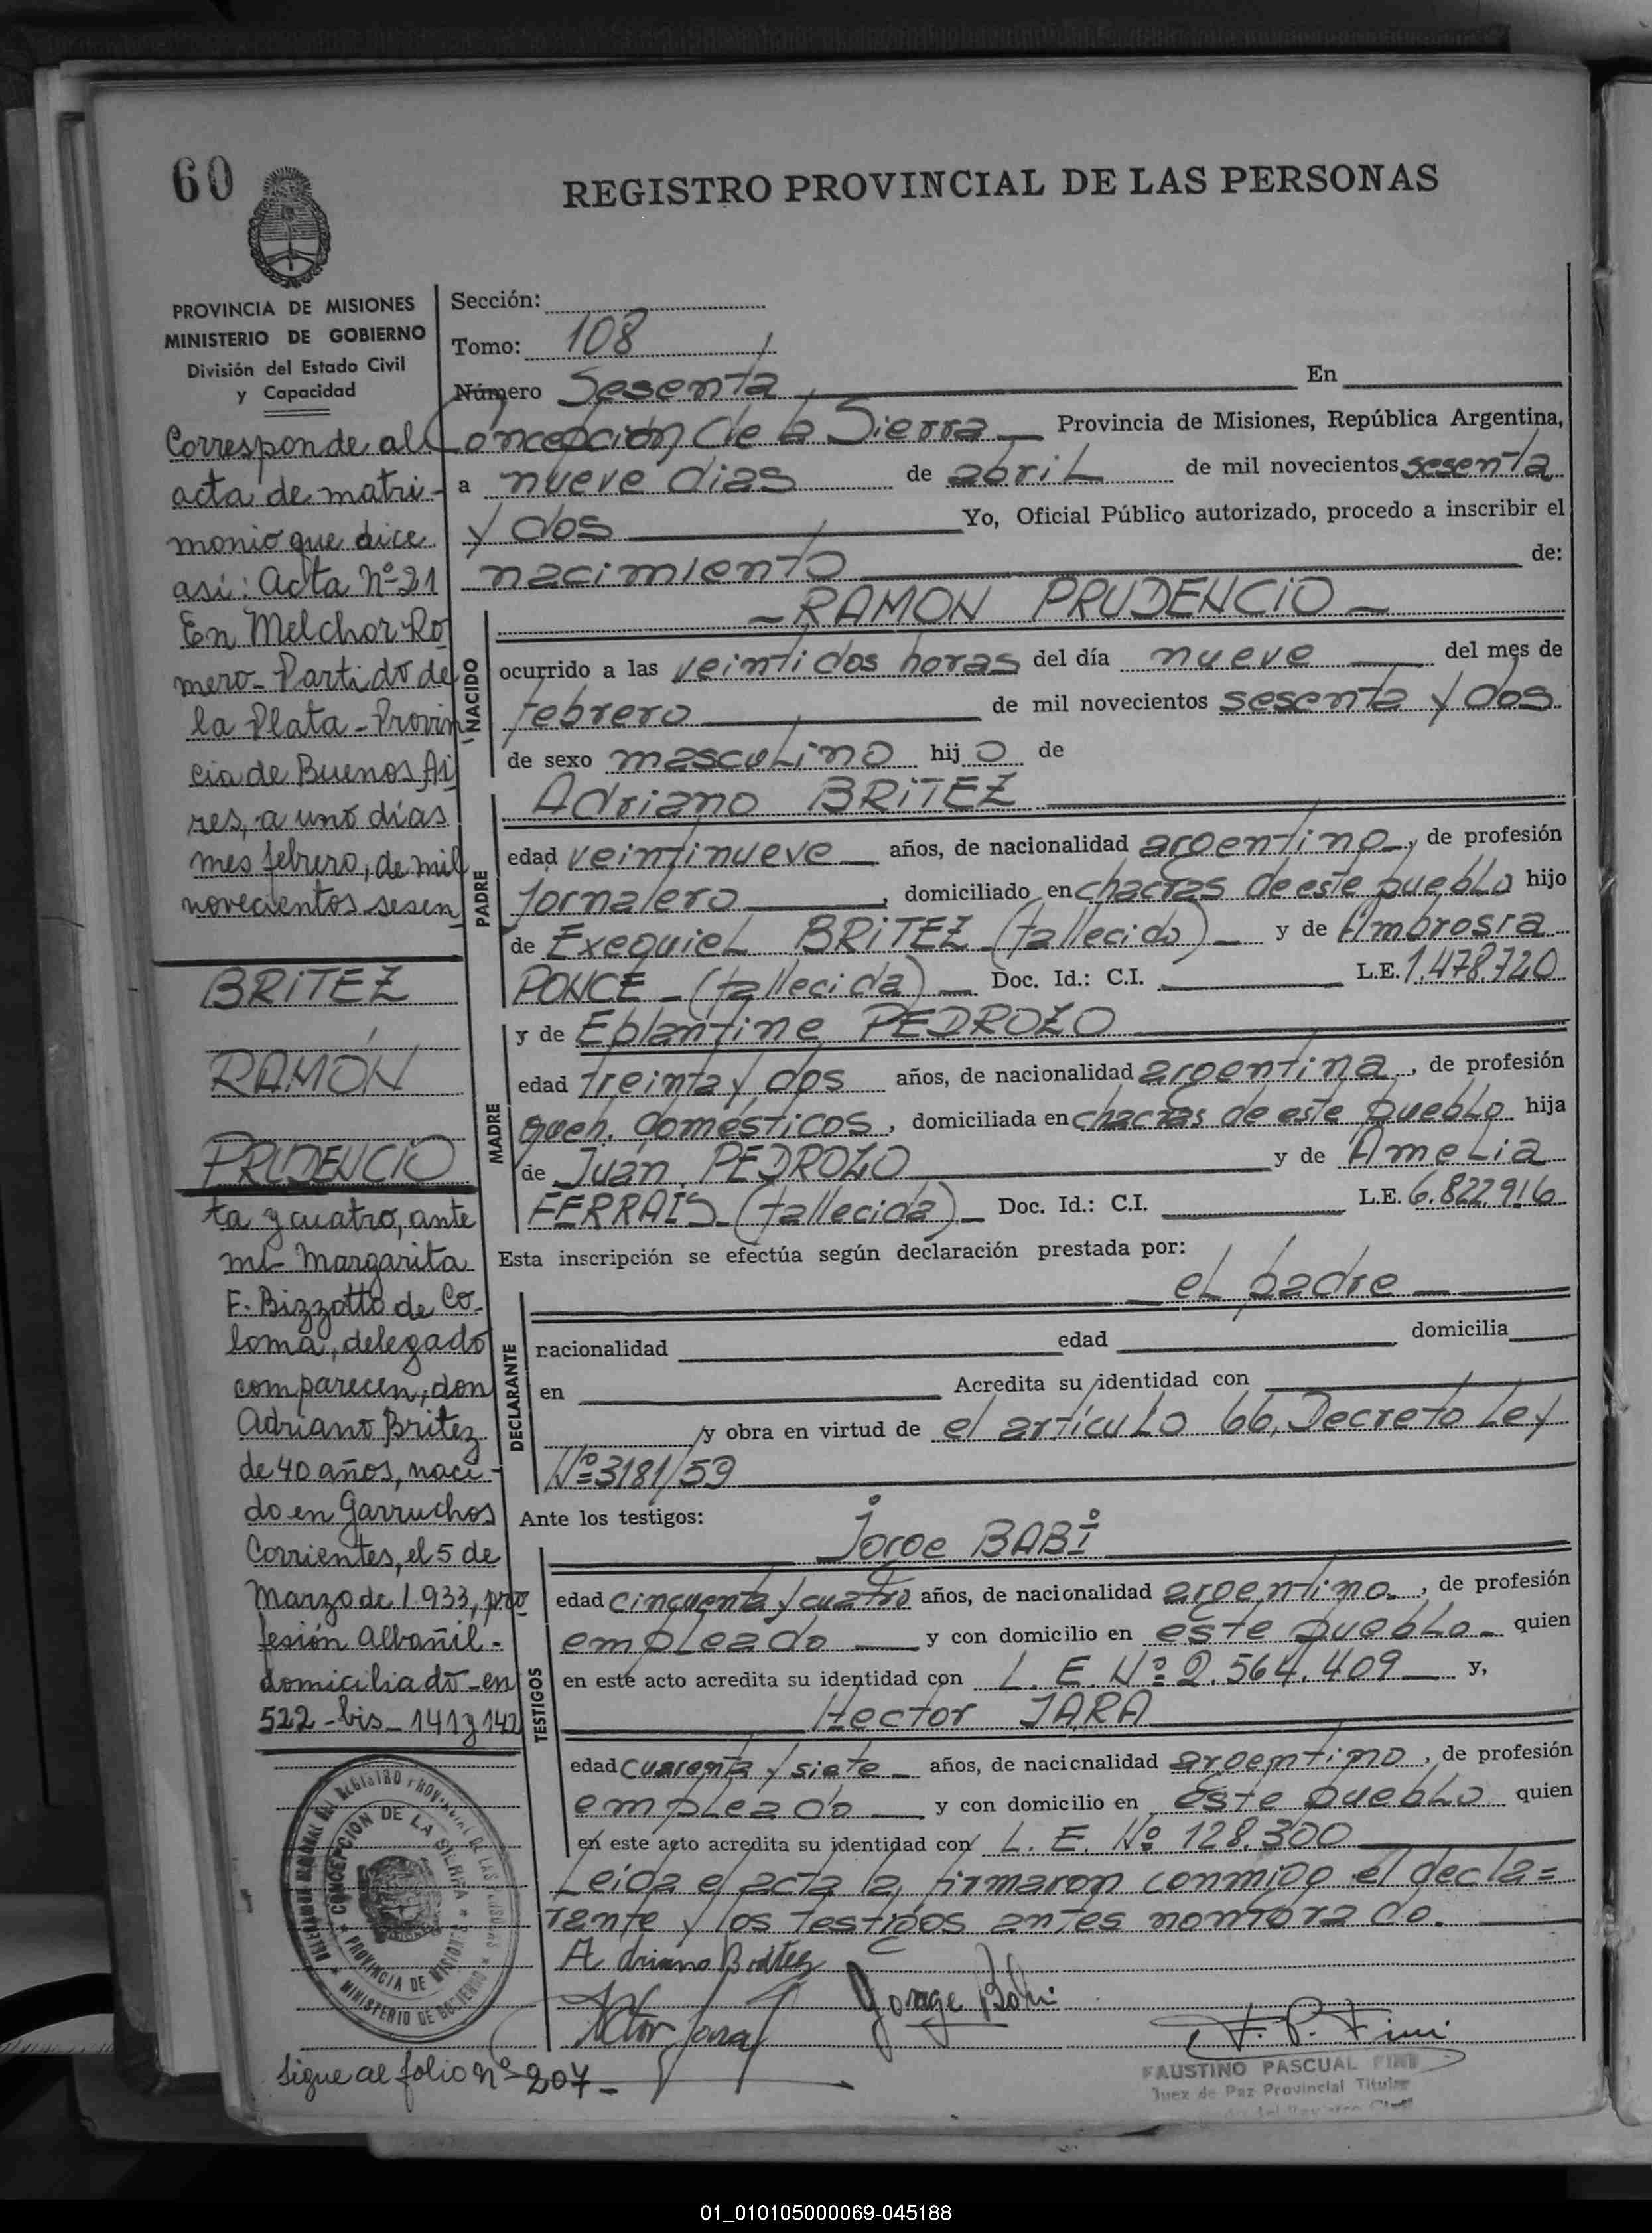 60
REGISTRO PROVINCIAL DE LAS PERSONAS
PROVINCIA DE MISIONES
MINISTERIO DE GOBIERNO
División del Estado Civil
y Capacidad
Corresponde al
acta de matri-
monio que dice
asi: Acta Nº 21
En Melchor Ro
mero - Partido de
la Plata - Provin
cia de Buenos Ai
res, a uno días
mes febrero, de mil
novecientos sesen
BRITEZ
RAMÓN
PRUDENCIO
ta y cuatro, ante
mi Margarita
E. Bizzotto de Co-
loma, delegado
comparecen, don
Adriano Britez
de 40 años, naci-
do en Garruchos
Corrientes, el 5 de
Marzo de 1.933, pro
fesión Albañil -
domiciliado - en
522 - bis - 141 y 142
Sigue al folio nº 207 -
Sección:
Tomo: 108
Número Sesenta En
Concepción de la Sierra Provincia de Misiones, República Argentina,
a nueve dias de abril de mil novecientos sesenta
y dos Yo, Oficial Público autorizado, procedo a inscribir el
nacimiento de:
- RAMON PRUDENCIO -
NACIDO
ocurrido a las veintidos horas del día nueve del mes de
febrero de mil novecientos sesenta y dos
de sexo masculino hijo de
PADRE
Adriano BRITEZ
edad veintinueve años, de nacionalidad argentino, de profesión
jornalero, domiciliado en chacras de este pueblo hijo
de Exequiel BRITEZ (fallecido) y de Ambrosia
PONCE - (fallecida) Doc. Id.: C.I. L.E. 1.478.720
MADRE
y de Eplantine PEDROZO
edad treinta y dos años, de nacionalidad argentina, de profesión
queh. domésticos, domiciliada en chacras de este pueblo hija
de Juan PEDROZO y de Amelia
FERRAIS (fallecida) Doc. Id.: C.I. L.E. 6.822.916
Esta inscripción se efectúa según declaración prestada por:
DECLARANTE
el padre
nacionalidad edad domicilia
en Acredita su identidad con
y obra en virtud de el artículo 66, Decreto Ley
Nº 3181/59
Ante los testigos:
TESTIGOS
Jorge BABÍ
edad cincuenta y cuatro años, de nacionalidad argentino, de profesión
empleado y con domicilio en este pueblo - quien
en este acto acredita su identidad con L. E. Nº 2.564.409 y,
Hector JARA
edad cuarenta y siete años, de nacicnalidad argentino, de profesión
empleado y con domicilio en este pueblo quien
en este acto acredita su identidad con L. E. Nº 128.300
Leida el acta la firmaron conmigo el decla=
rante y los testigos antes nombrado.
Adriano Britez
Jorge Babi
F. P. Fini
FAUSTINO PASCUAL FINI
Juez de Paz Provincial Titular
CONCEPCION DE LA SIERRA
PROVINCIA DE MISIONES
MINISTERIO DE GOBIERNO
01_010105000069-045188